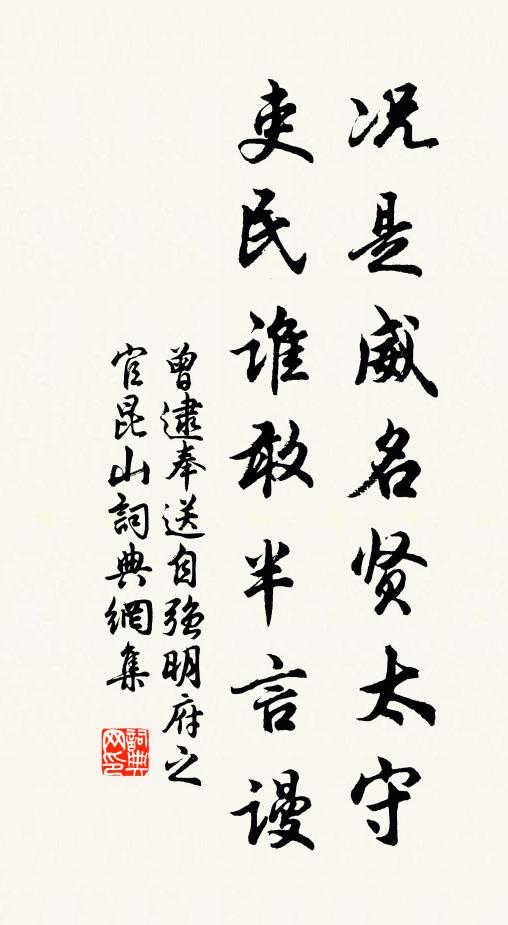 况是威名贤太守
吏民谁敢半言谩
曾逮奉送自强明府之
官昆山詞典網集
詞典
网印